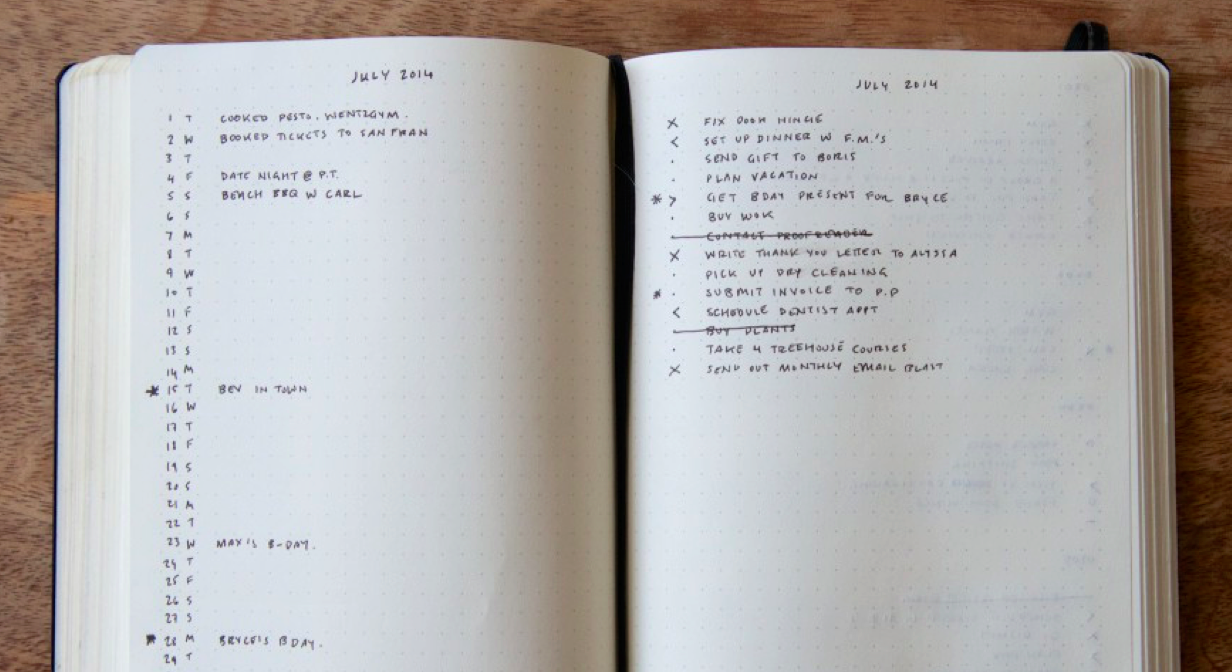 JULY 2014
1 T COOKED PESTO. WENT2GYM.
2 W BOOKED TICKETS TO SAN FRAN
3 T
4 F DATE NIGHT @ P.T.
5 S BEACH BBQ W CARL
6 S
7 M
8 T
9 W
10 T
11 F
12 S
13 S
14 M
* 15 T BEV IN TOWN
16 W
17 T
18 F
19 S
20 S
21 M
22 T
23 W MAX'S B-DAY.
24 T
25 F
26 S
27 S
* 28 M BRYCE'S BDAY.
29 T
JULY 2014
X FIX DOOR HINGE
< SET UP DINNER W F.M.'S
· SEND GIFT TO BORIS
· PLAN VACATION
* > GET BDAY PRESENT FOR BRYCE
· BUY WOK
CONTACT PROOFREADER
X WRITE THANK YOU LETTER TO ALYSSA
· PICK UP DRY CLEANING
* · SUBMIT INVOICE TO P.P
< SCHEDULE DENTIST APPT
BUY PLANTS
· TAKE 4 TREEHOUSE COURSES
X SEND OUT MONTHLY EMAIL BLAST